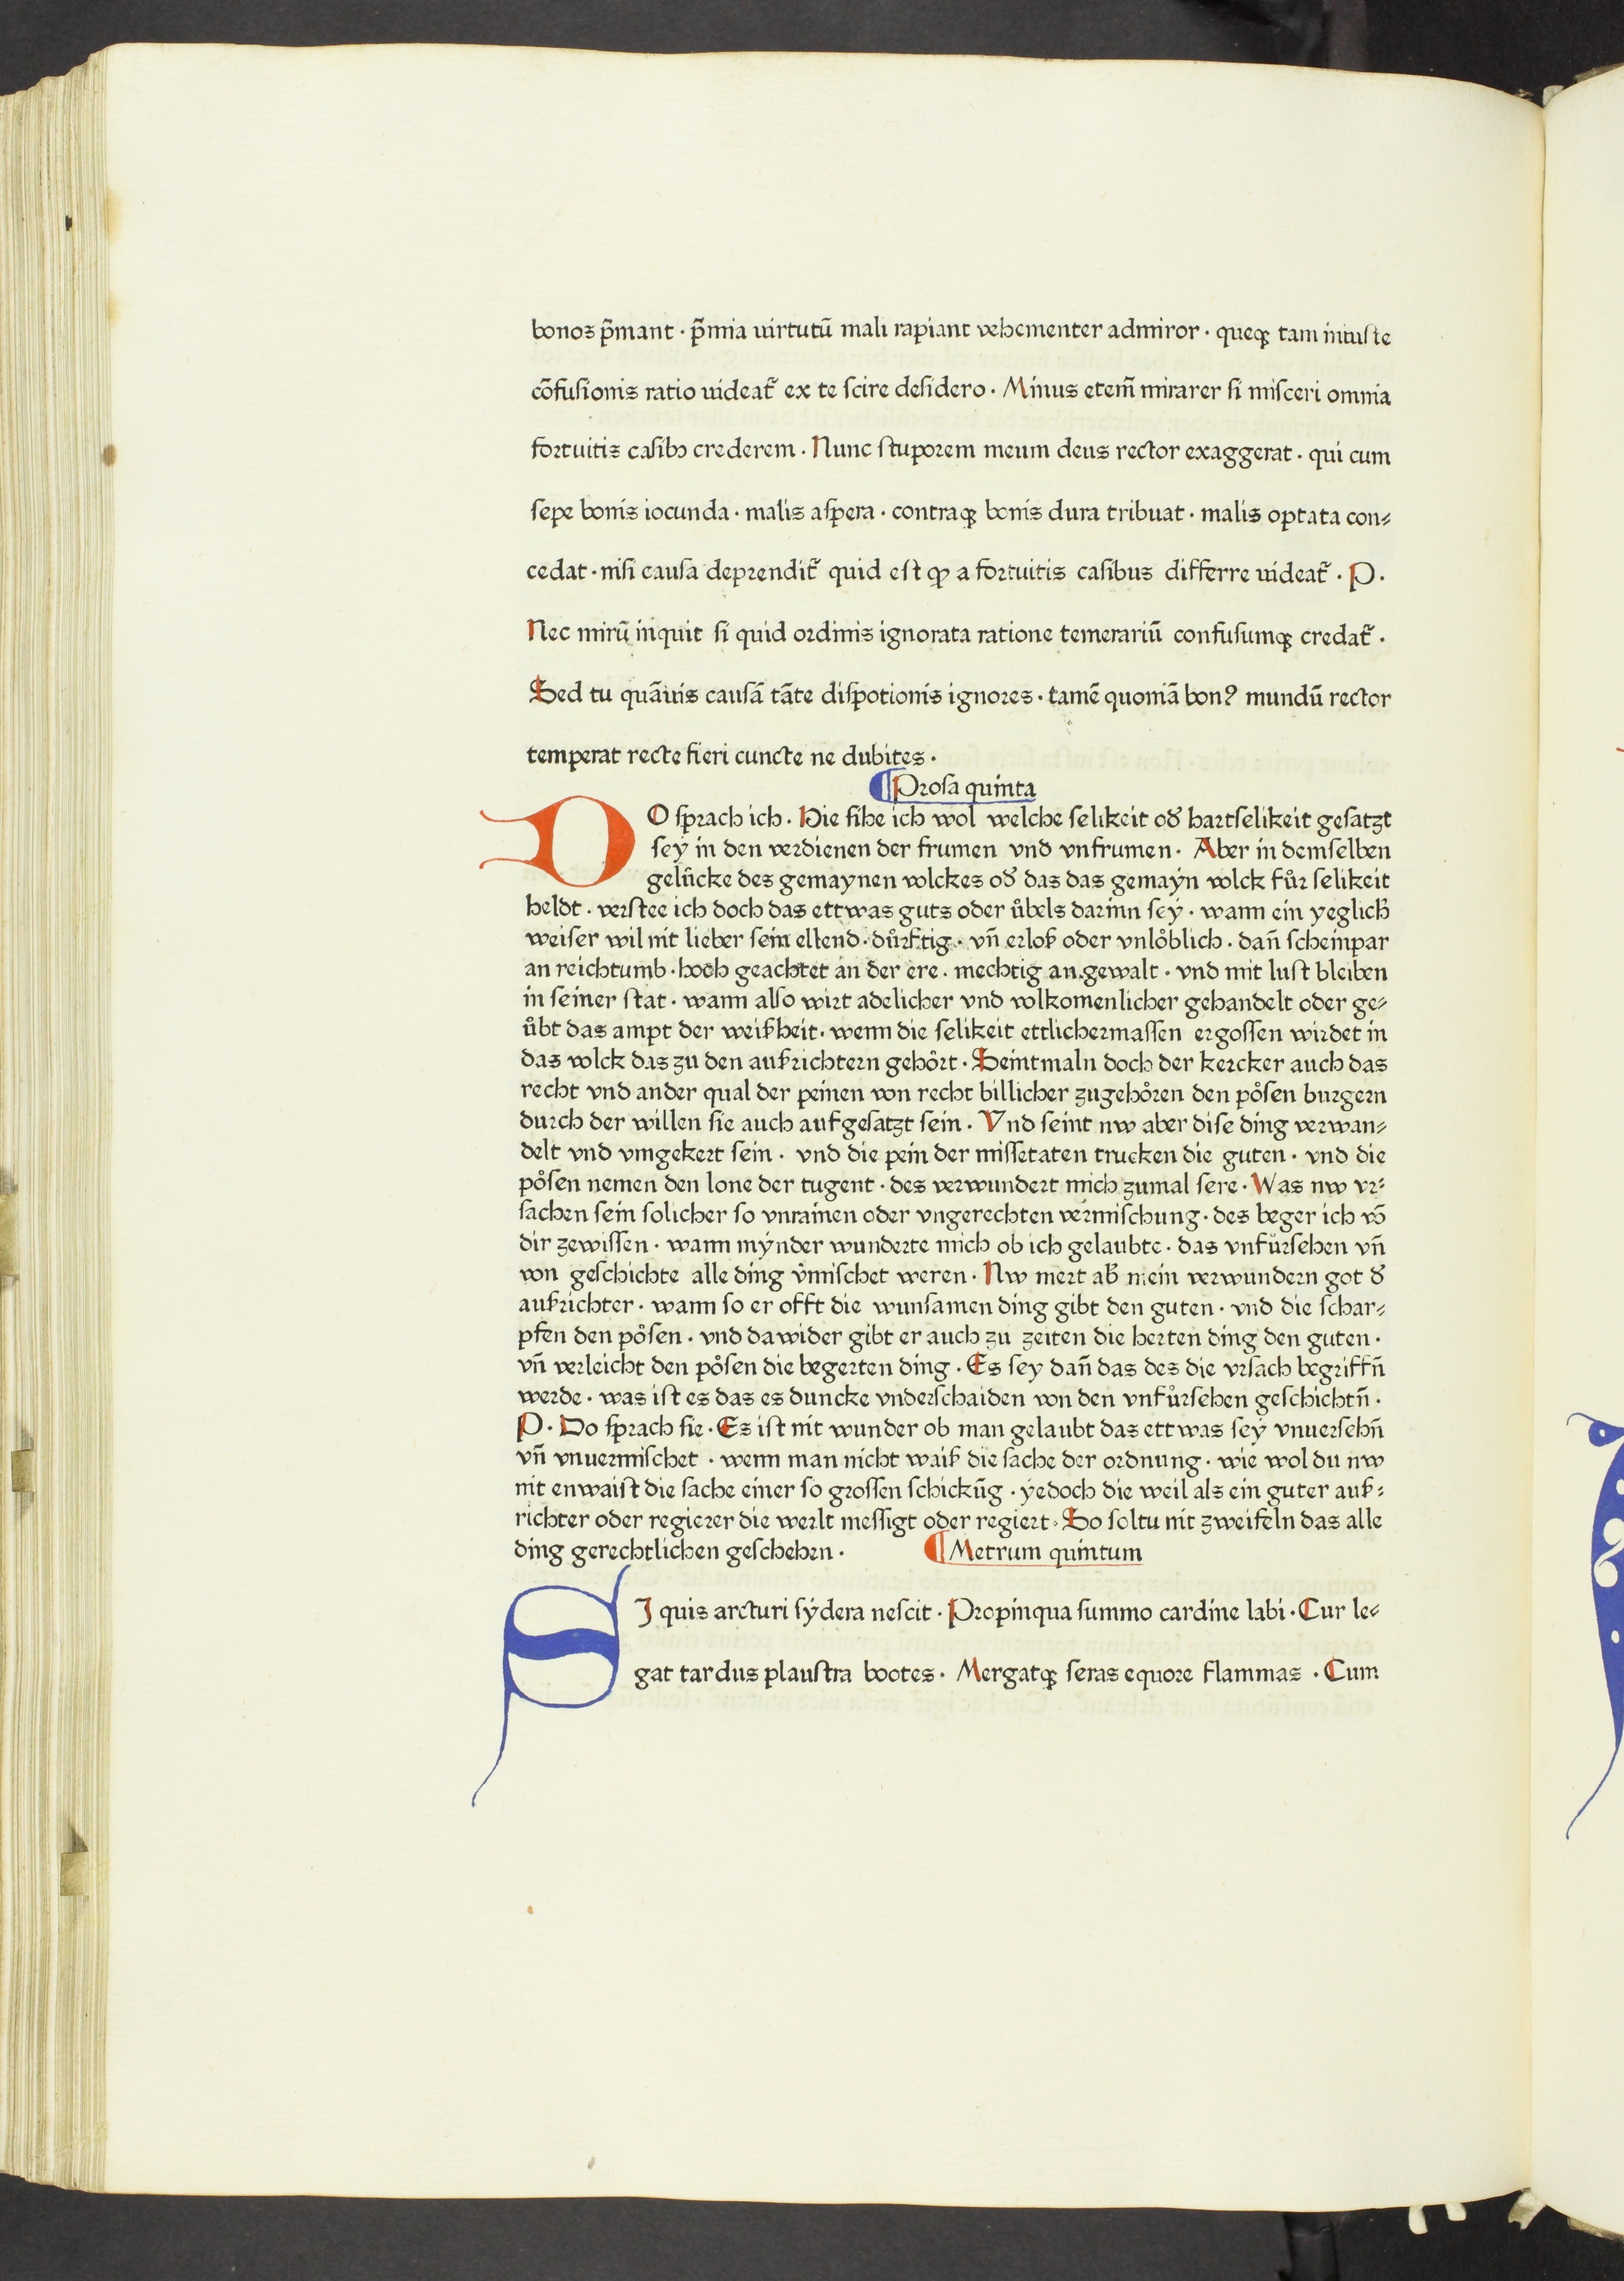 bonos p̃mant · p̃mia uirtutũ mali rapiant vehementer admiror · queqꝫ tam iniuste
cõfusionis ratio uideat᷑ ex te scire desidero · Minus etem̃ mirarer si misceri omnia
fortuitis casibꝰ crederem · Nunc stuporem meum deus rector exaggerat · qui cum
sepe bonis iocunda · malis aspera · contraqꝫ bonis dura tribuat · malis optata con⸗
cedat · nisi causa deprendit᷑ quid est qꝙ a fortuitis casibus differre uideat᷑ · P ·
Nec mirũ inquit si quid ordinis ignorata ratione temerariũ confusumqꝫ credat᷑ ·
Sed tu quãuis causã tãte dispotionis ignores · tamẽ quoniã bonꝰ mundũ rector
temperat recte fieri cuncte ne dubites ·
¶ Prosa quinta
DO sprach ich · Hie sihe ich wol welche selikeit od̕ hartselikeit gesatzt
sey in den verdienen der frumen vnd vnfrumen · Aber in demselben
gelůcke des gemaynen volckes od̕ das das gemayn volck fůr selikeit
heldt · verstee ich doch das ettwas guts oder ůbels darinn sey · wann ein yeglich̕
weiser wil nit lieber sein ellend · důrftig · vñ erloß oder vnlôblich · dañ scheinpar
an reichtumb · hoch geachtet an der ere · mechtig an gewalt · vnd mit lust bleiben
in seiner stat · wann also wirt adelicher vnd volkomenlicher gehandelt oder ge⸗
ůbt das ampt der weißheit · wenn die selikeit ettlichermassen ergossen wirdet in
das volck das zu den außrichtern gehôrt · Seintmaln doch der kercker auch das
recht vnd ander qual der peinen von recht billicher zugehôren den pôsen burgern
durch der willen sie auch aufgesatzt sein · Vnd seint nw aber dise ding verwan⸗
delt vnd vmgekert sein · vnd die pein der missetaten trucken die guten · vnd die
pôsen nemen den lone der tugent · des verwundert mich zumal sere · Was nw vr⸗
sachen sein solicher so vnrainen oder vngerechten vermischung · des beger ich võ
dir zewissen · wann mynder wunderte mich ob ich gelaubte · das vnfůrsehen vñ
von geschichte alle ding v̉mischet weren · Nw mert ab̕ mein verwundern got d̕
außrichter · wann so er offt die wunsamen ding gibt den guten · vnd die schar⸗
pfen den pôsen · vnd dawider gibt er auch zu zeiten die herten ding den guten ·
vñ verleicht den pôsen die begerten ding · Es sey dañ das des die vrsach begriffñ
werde · was ist es das es duncke vnderschaiden von den vnfůrsehen geschichtñ ·
P · Do sprach sie · Es ist nit wunder ob man gelaubt das ettwas sey vnuersehñ
vñ vnuermischet · wenn man nicht waiß die sache der ordnung · wie wol du nw
nit enwaist die sache einer so grossen schickũg · yedoch die weil als ein guter auß⸗
richter oder regierer die werlt messigt oder regiert · So soltu nit zweifeln das alle
ding gerechtlichen geschehen · ¶ Metrum quintum
SI quis arcturi sydera nescit · Propinqua summo cardine labi · Cur le⸗
gat tardus plaustra bootes · Mergatqꝫ seras equore flammas · Cum